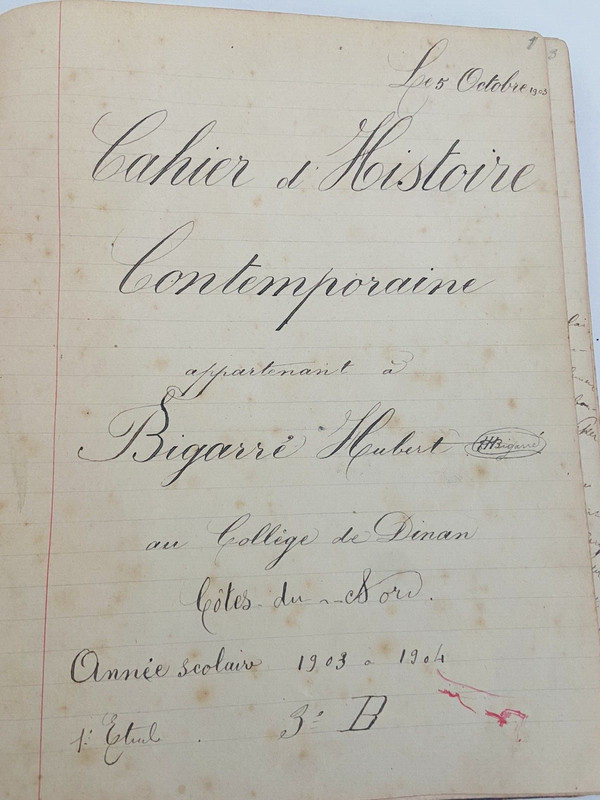 1 3
Le 5 Octobre 1903
Cahier d'Histoire
Contemporaine
appartenant à
Bigarré Hubert HBigarré
au Collège de Dinan
Côtes-du-Nord.
Année scolaire 1903 à 1904
3e B